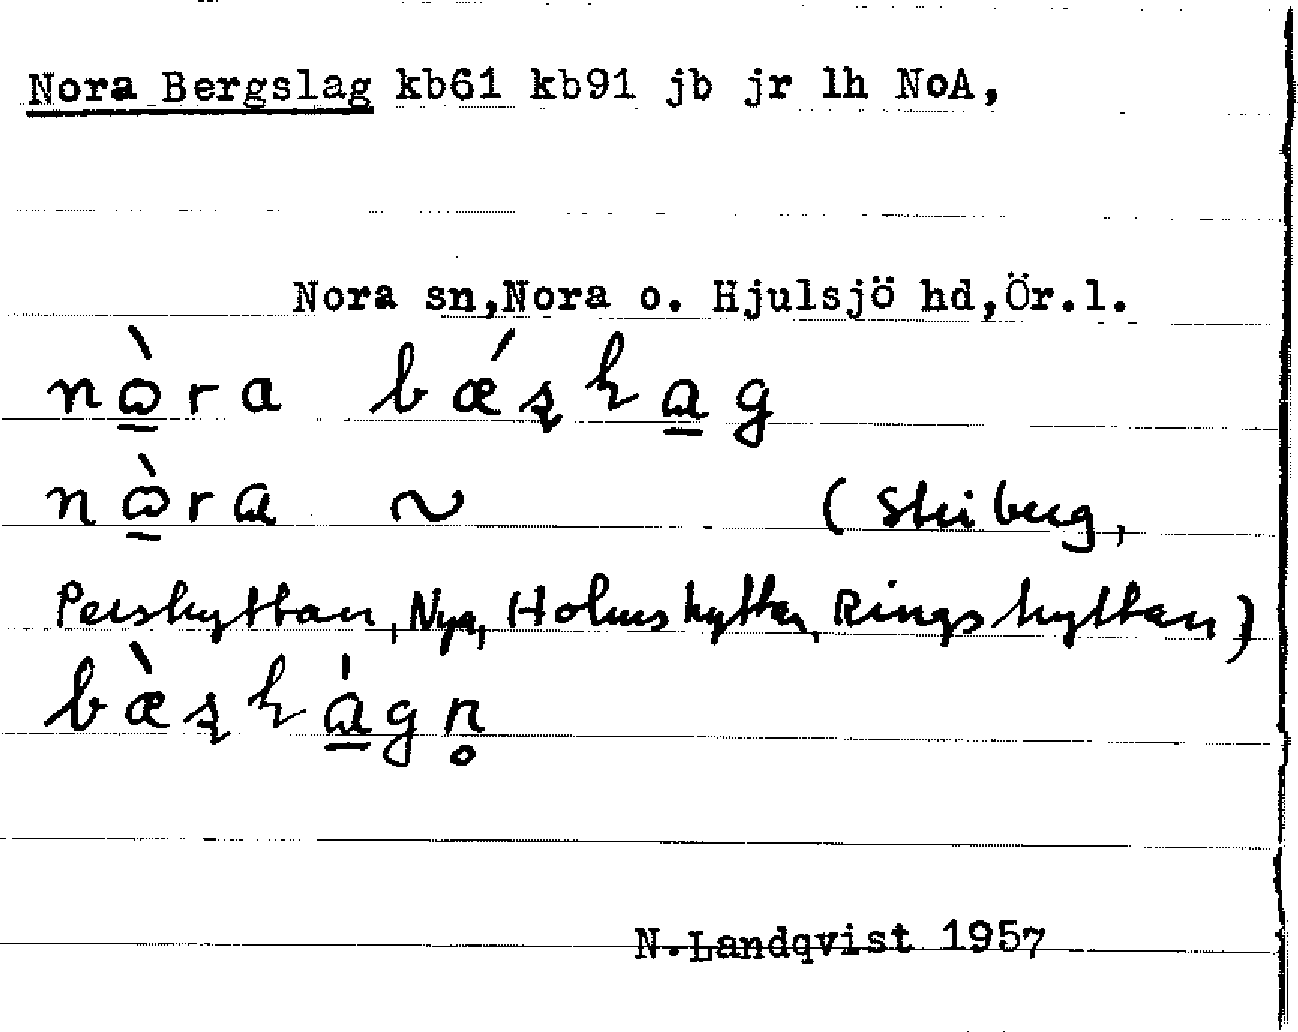 Nora Bergslag kb61 kb91 jb jr lh NoA,
Nora sn,Nora o. Hjulsjö hd,Ör.l.
nὼ̲ra bǽʂɫa̲g
nὼ̲rɑ ~ (Striberg,
Pershyttan, Nya, Holmshyttan, Ringshyttan)
bæ̀ʂɫá̲gn̥
N.Landqvist 1957